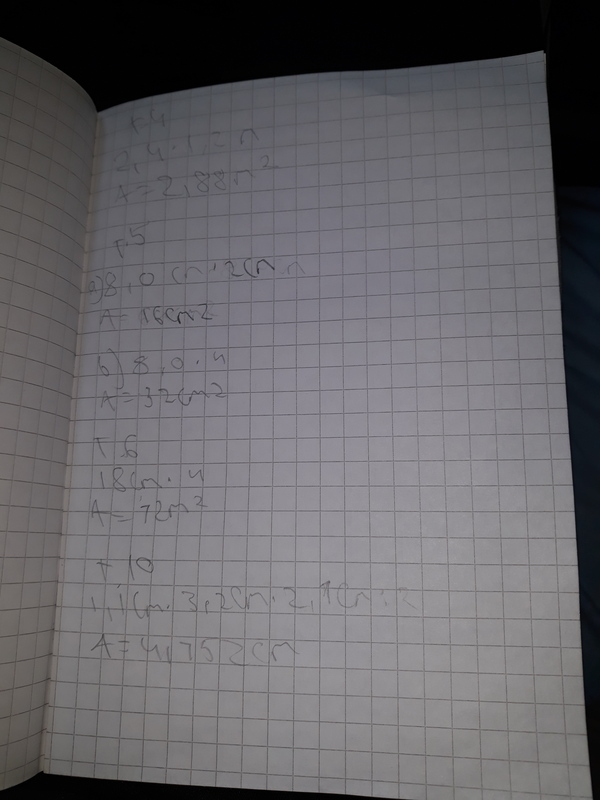 t.4
2,4·1,2m
A=2,88m²
t5
a)8,0 cm·2cm
A=16cm2
b) 8,0·4
A=32cm2
T.6
18cm·4
A=72m²
T 10
1,1cm·3,2cm·2,
A=4,752cm